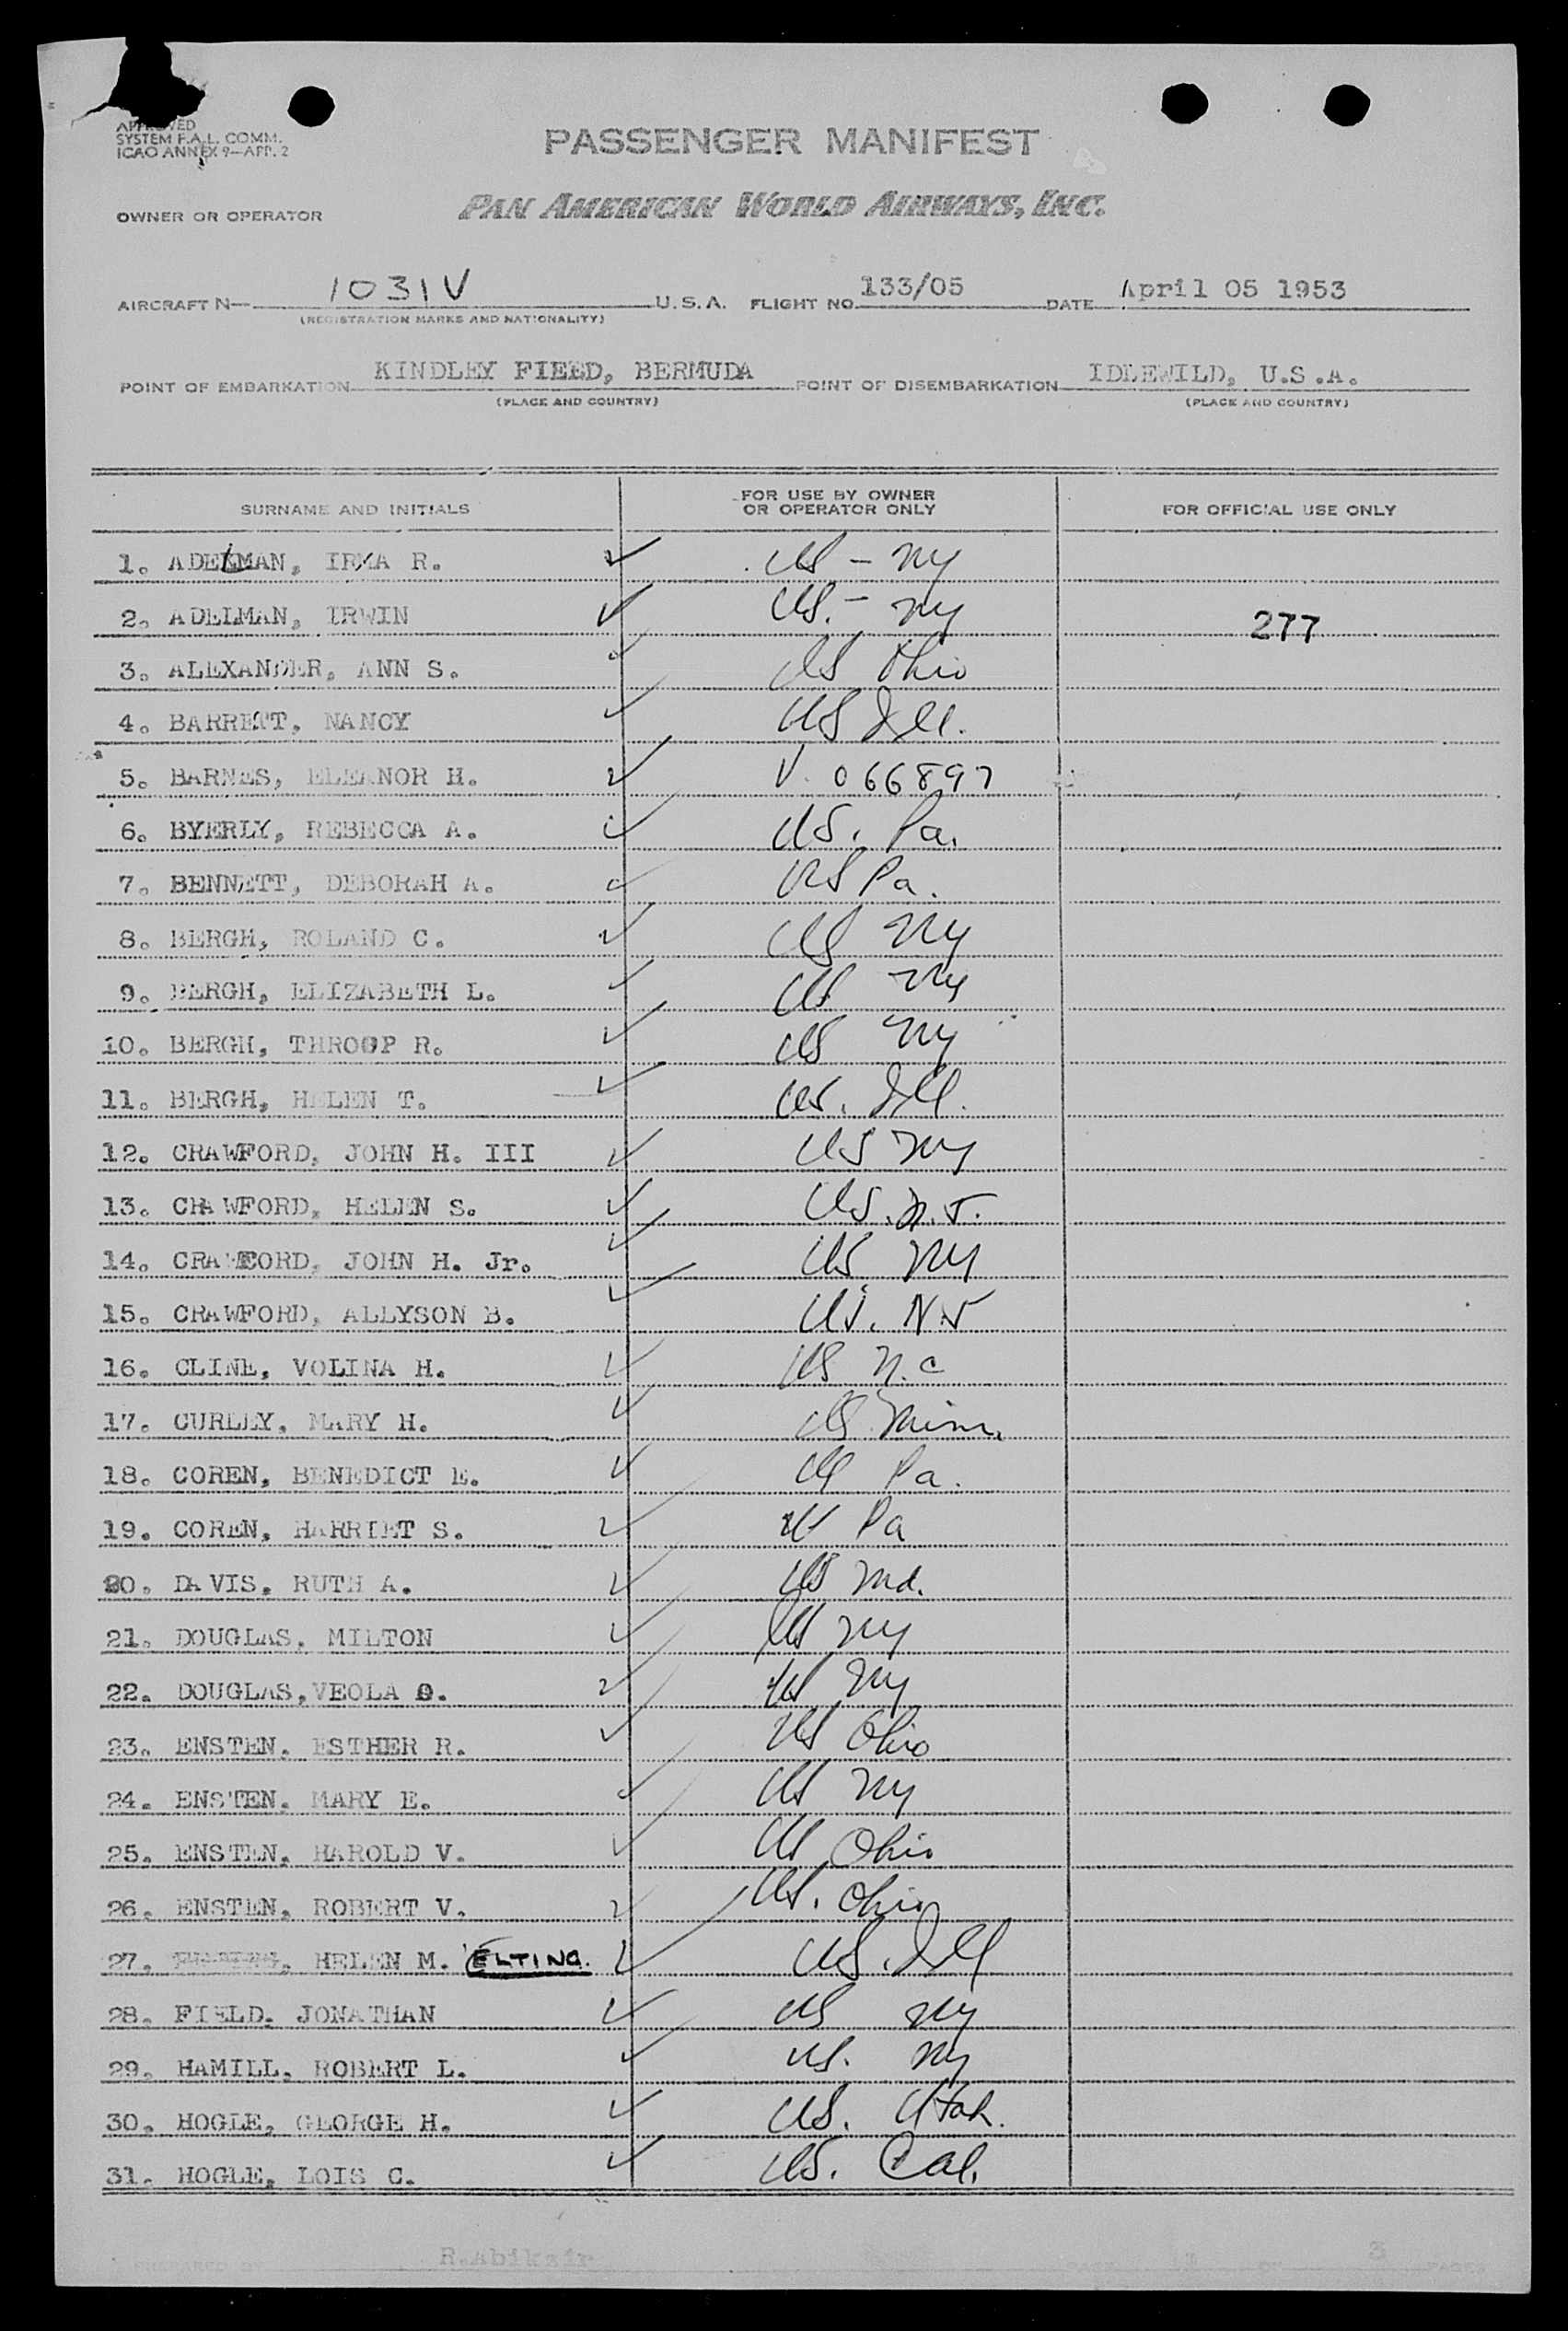 APPROVED
SYSTEM F.A.L. COMM.
ICAO ANNEX 9—APP. 2
PASSENGER MANIFEST
OWNER OR OPERATOR PAN AMERICAN WORLD AIRWAYS, INC.
AIRCRAFT N— 1031V U.S.A. FLIGHT NO. 133/05 DATE April 05 1953
(REGISTRATION MARKS AND NATIONALITY)
POINT OF EMBARKATION KINDLEY FIELD, BERMUDA POINT OF DISEMBARKATION IDLEWILD, U.S.A.
(PLACE AND COUNTRY) (PLACE AND COUNTRY)
SURNAME AND INITIALS FOR USE BY OWNER OR OPERATOR ONLY FOR OFFICIAL USE ONLY
1. ADELMAN, IRMA R. ✓ US - NY
2. ADELMAN, IRWIN ✓ US. - NY 277
3. ALEXANDER, ANN S. ✓ US Ohio
4. BARRETT, NANCY ✓ US Ill.
5. BARNES, ELEANOR H. ✓ V. 066897
6. BYERLY, REBECCA A. ✓ US. Pa.
7. BENNETT, DEBORAH A. ✓ US Pa.
8. BERGH, ROLAND C. ✓ US NY
9. BERGH, ELIZABETH L. ✓ US NY
10. BERGH, THROOP R. ✓ US NY
11. BERGH, HELEN T. ✓ US. Ill.
12. CRAWFORD, JOHN H. III ✓ US NY
13. CRAWFORD, HELEN S. ✓ US. N.J.
14. CRAWFORD, JOHN H. Jr. ✓ US NY
15. CRAWFORD, ALLYSON B. ✓ US. N.J
16. CLINE, VOLINA H. ✓ US N.C
17. CURLEY, MARY H. ✓ US Minn.
18. COREN, BENEDICT E. ✓ US Pa.
19. COREN, HARRIET S. ✓ US Pa
20. DAVIS, RUTH A. ✓ US Md.
21. DOUGLAS, MILTON ✓ US NY
22. DOUGLAS, VEOLA O. ✓ US NY
23. ENSTEN, ESTHER R. ✓ US Ohio
24. ENSTEN, MARY E. ✓ US NY
25. ENSTEN, HAROLD V. ✓ US Ohio
26. ENSTEN, ROBERT V. ✓ US. Ohio
27. HELEN M. ELTING. ✓ US. Ill
28. FIELD, JONATHAN ✓ US NY
29. HAMILL, ROBERT L. ✓ US. NY
30. HOGLE, GEORGE H. ✓ US. Utah.
31. HOGLE, LOIS C. ✓ US. Cal.
PREPARED BY R.Abiksir PAGE 1 OF 3 PAGES